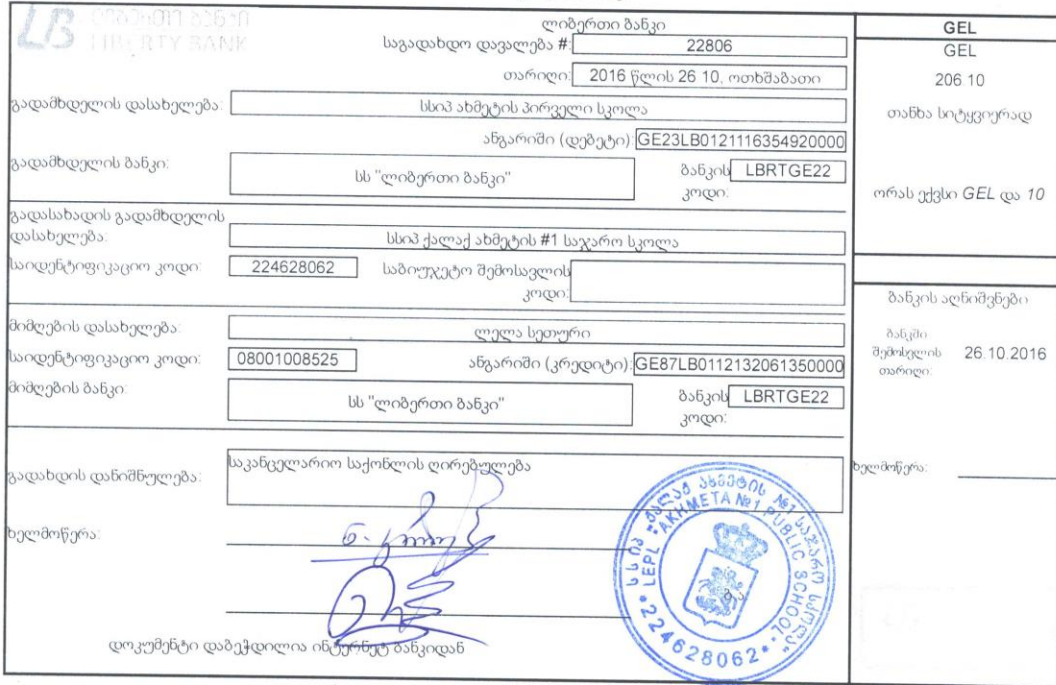 LB ლიბერთი ბანკი
LIBERTY BANK
ლიბერთი ბანკი
საგადახდო დავალება #: 22806
თარიღი: 2016 წლის 26 10. ოთხშაბათი
გადამხდელის დასახელება: სსიპ ახმეტის პირველი სკოლა
ანგარიში (დებეტი): GE23LB0121116354920000
გადამხდელის ბანკი: სს "ლიბერთი ბანკი" ბანკის კოდი: LBRTGE22
გადასახადის გადამხდელის
დასახელება: სსიპ ქალაქ ახმეტის #1 საჯარო სკოლა
საიდენტიფიკაციო კოდი: 224628062 საბიუჯეტო შემოსავლის
კოდი:
მიმღების დასახელება: ლელა სეთური
საიდენტიფიკაციო კოდი: 08001008525 ანგარიში (კრედიტი): GE87LB0112132061350000
მიმღების ბანკი: სს "ლიბერთი ბანკი" ბანკის კოდი: LBRTGE22
გადახდის დანიშნულება: საკანცელარიო საქონლის ღირებულება
ხელმოწერა:
დოკუმენტი დაბეჭდილია ინტერნეტ ბანკიდან
GEL
GEL
206.10
თანხა სიტყვიერად
ორას ექვსი GEL და 10
ბანკის აღნიშვნები
ბანკში
შემოსვლის 26.10.2016
თარიღი:
ხელმოწერა:
სსიპ "ქალაქ ახმეტის №1 საჯარო სკოლა"
LEPL "AKHMETA №1 PUBLIC SCHOOL"
* 224628062 *